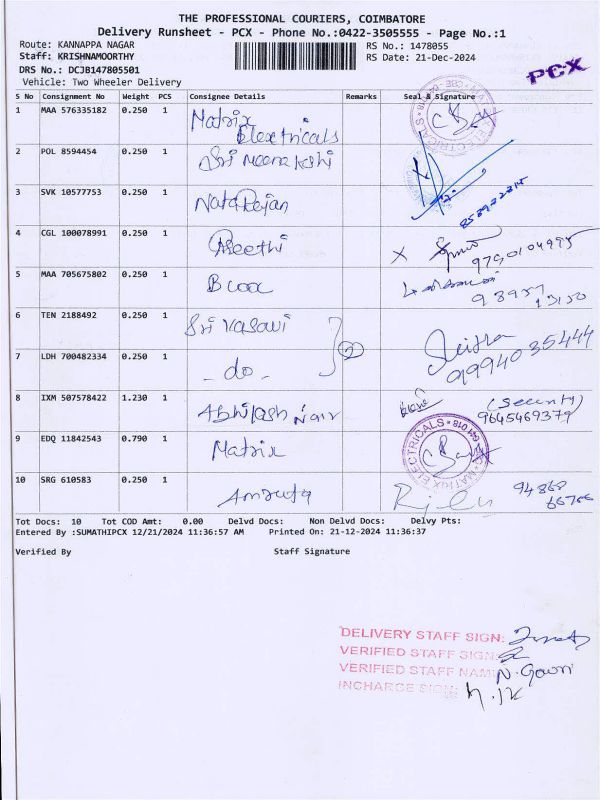 THE PROFESSIONAL COURIERS, COIMBATORE
Delivery Runsheet - PCX - Phone No.:0422-3505555 - Page No.:1
Route: KANNAPPA NAGAR RS No.: 1478055
Staff: KRISHNAMOORTHY RS Date: 21-Dec-2024
PCX
DRS No.: DCJB147805501
Vehicle: Two Wheeler Delivery
S No Consignment No Weight PCS Consignee Details Remarks Seal & Signature
1 MAA 576335182 0.250 1 Matrix Electricals
2 POL 8594454 0.250 1 Sri meenakshi
3 SVK 10577753 0.250 1 Natarajan
4 CGL 100078991 0.250 1 Preethi X 9790104995
5 MAA 705675802 0.250 1
6 TEN 2188492 0.250 1 Sri Vasavi
7 LDH 700482334 0.250 1 - do - 2 9994035444
8 IXM 507578422 1.230 1 Abhilash Nair (Security) 9645469379
9 EDQ 11842543 0.790 1 Matrix MATRIX ELECTRICALS
10 SRG 610583 0.250 1 Amruta
Tot Docs: 10 Tot COD Amt: 0.00 Delvd Docs: Non Delvd Docs: Delvy Pts:
Entered By :SUMATHIPCX 12/21/2024 11:36:57 AM Printed On: 21-12-2024 11:36:37
Verified By Staff Signature
DELIVERY STAFF SIGN:
VERIFIED STAFF SIGN:
VERIFIED STAFF NAME: N. Gowri
INCHARGE SIGN: